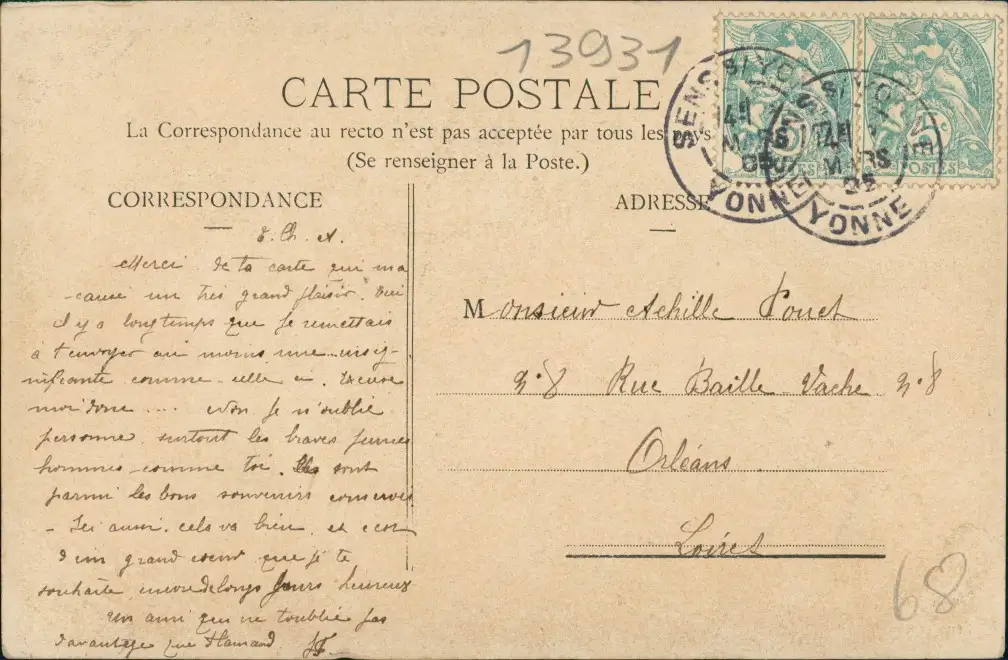 13931
CARTE POSTALE
La Correspondance au recto n'est pas acceptée par tous les pays
(Se renseigner à la Poste.)
SENS S/YONNE
14 MARS
YONNE
SENS S/YONNE
14 MARS
YONNE
POSTES
CORRESPONDANCE
ADRESSE
E. Ch. A.
Merci de ta carte qui m'a
causé un très grand plaisir. Oui
il y a longtemps que je remettais
à t'envoyer au moins une insig-
nifiante comme celle ci. Excuse
moi donc .... Non je n'oublie
personne surtout les braves jeunes
hommes comme toi. Ils sont
parmi les bons souvenirs conservés
- Ici aussi cela va bien et c'est
d'un grand coeur que je te
souhaite encore de longs jours heureux
Un ami qui ne t'oublie pas
davantage que Flamand
Monsieur Achille Pouet
n° 8 Rue Baille Vache n° 8
Orléans
Loiret
68